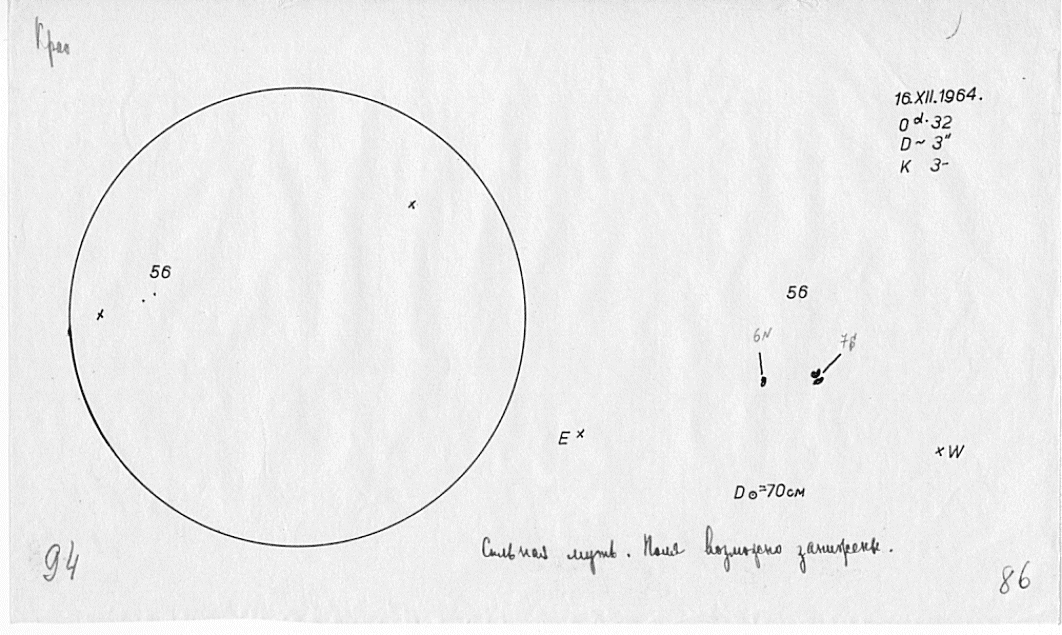 Крас
16.XII.1964.
0ᵈ.32
D ~ 3"
K 3-
56
56
6N
E ×
× W
D⊙=70см
Сильная муть. Поля возможно занижены.
94
86